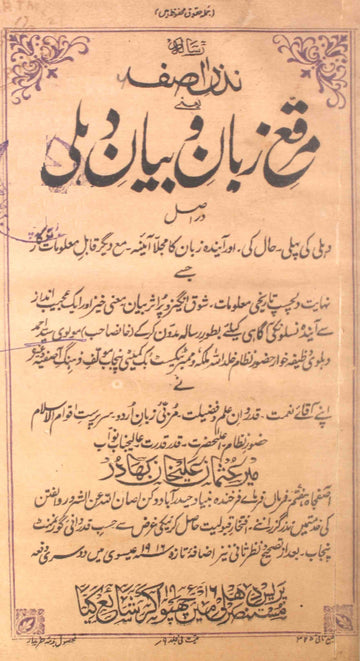 (جملہ حقوق محفوظ ہیں)
رسالہ
نذر آصفیہ
یعنے
مرقع زبان و بیان دہلی
دراصل
دہلی کی پہلی۔ حال کی۔ اور آیندہ زبان کا مجلّا آئینہ۔ مع دیگر قابل معلومات
جسے
نہایت دلچسپ تاریخی معلومات۔ شوق انگیز و پُراثر بیان معنی خیز اور ایک عجیب انداز
سے آیندہ نسلوں کی آگاہی کیلئے بطور رسالہ مدوّن کر کے (خانصاحب) مولوی سید احمد
دہلوی وظیفہ خوار حضور نظام خلد اللہ ملکہٗ و ممبر ٹیکسٹ بک کمیٹی پنجاب مولف فرہنگ آصفیہ وغیرہ
نے
اپنے آقائے نعمت۔ قدردان علم و فضیلت۔ مربّی زبان اردو۔ سرپرست اقوام الاسلام
حضور نظام اعلیٰحضرت۔ قدر قدرت عالیجناب نواب
میر عثمان علیخان بہادر
آصفجاہ ہفتم۔ فرماں فرمائے فرخندہ بنیاد حیدرآباد دکن صانہا اللہ عن الشرور والفتن
کی خدمت میں نذر گزراننے۔ افتخار قبولیت حاصل کرنیکی غرض سے حسب قدردانی گورنمنٹ
پنجاب۔ بعد از تصحیح و نظر ثانی نیز اضافۂ تازہ ۱۹۱۶ عیسوی میں دوسری دفعہ
پریس دہلی میں چھپوا کر شائع کیا